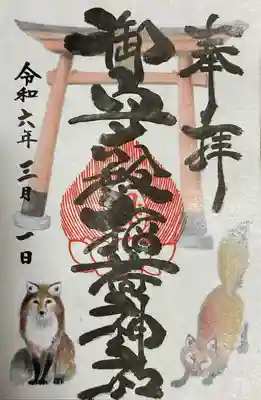 奉拝
御殿稲荷神社
令和六年三月一日